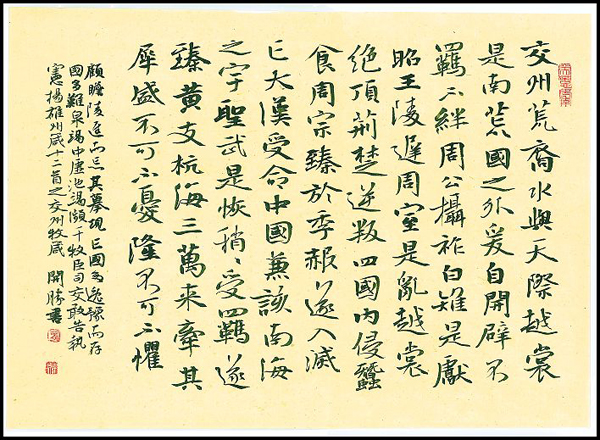 交州荒裔水與天際越裳
是南荒國之外爰自開闢不
羈不絆周公攝祚白雉是獻
昭王陵遲周室是亂越裳
絕頂荊楚逆叛四國內侵蠶
食周宗臻於季赧遂入滅
亡大漢受命中國兼該南海
之宇聖武是恢稍〻受羈遂
臻黃支杭海三萬來牽其
犀盛不可不憂隆不可不懼
顧瞻陵遲而亡其摹規亡國多逸豫而存
國多難泉竭中虛池竭瀕干牧臣司交敢告執
憲揚雄州箴十二首之交州牧箴 開勝書